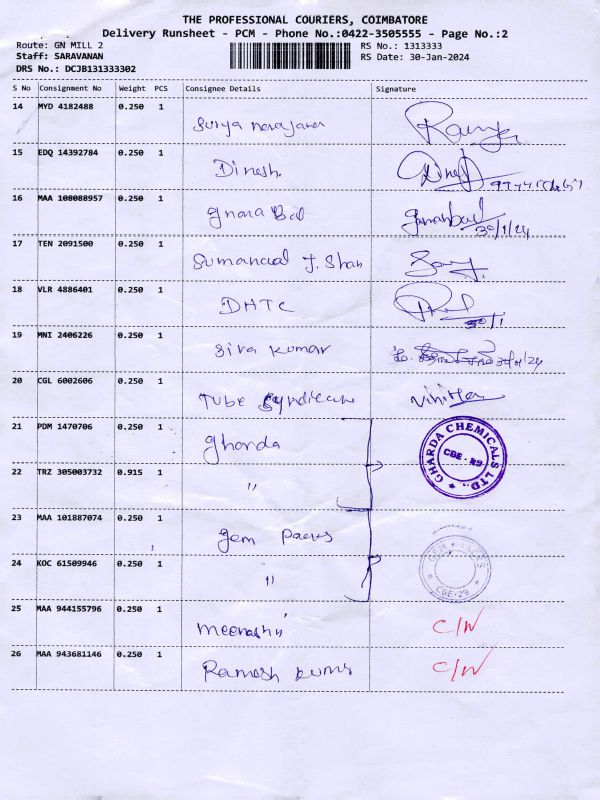 THE PROFESSIONAL COURIERS, COIMBATORE
Delivery Runsheet - PCM - Phone No.:0422-3505555 - Page No.:2
Route: GN MILL 2 RS No.: 1313333
Staff: SARAVANAN RS Date: 30-Jan-2024
DRS No.: DCJB131333302
S No Consignment No Weight PCS Consignee Details Signature
14 MYD 4182488 0.250 1
Surya narayanan
15 EDQ 14392784 0.250 1
Dinesh.
16 MAA 108088957 0.250 1
gnana Bal
30/1/24
17 TEN 2091500 0.250 1
J. Shah
18 VLR 4886401 0.250 1
DHTC
30/1
19 MNI 2406226 0.250 1
Siva kumar
20 CGL 6002606 0.250 1
Tube Syndicate
21 PDM 1470706 0.250 1
Gharda
GHARDA CHEMICALS LTD.,
CBE - 29
22 TRZ 305003732 0.915 1
"
23 MAA 101887074 0.250 1
Gem Packs
24 KOC 61509946 0.250 1
"
GEM PACKS
CBE-29
25 MAA 944155796 0.250 1
Meenashi C/W
26 MAA 943681146 0.250 1
Ramesh kumar C/W